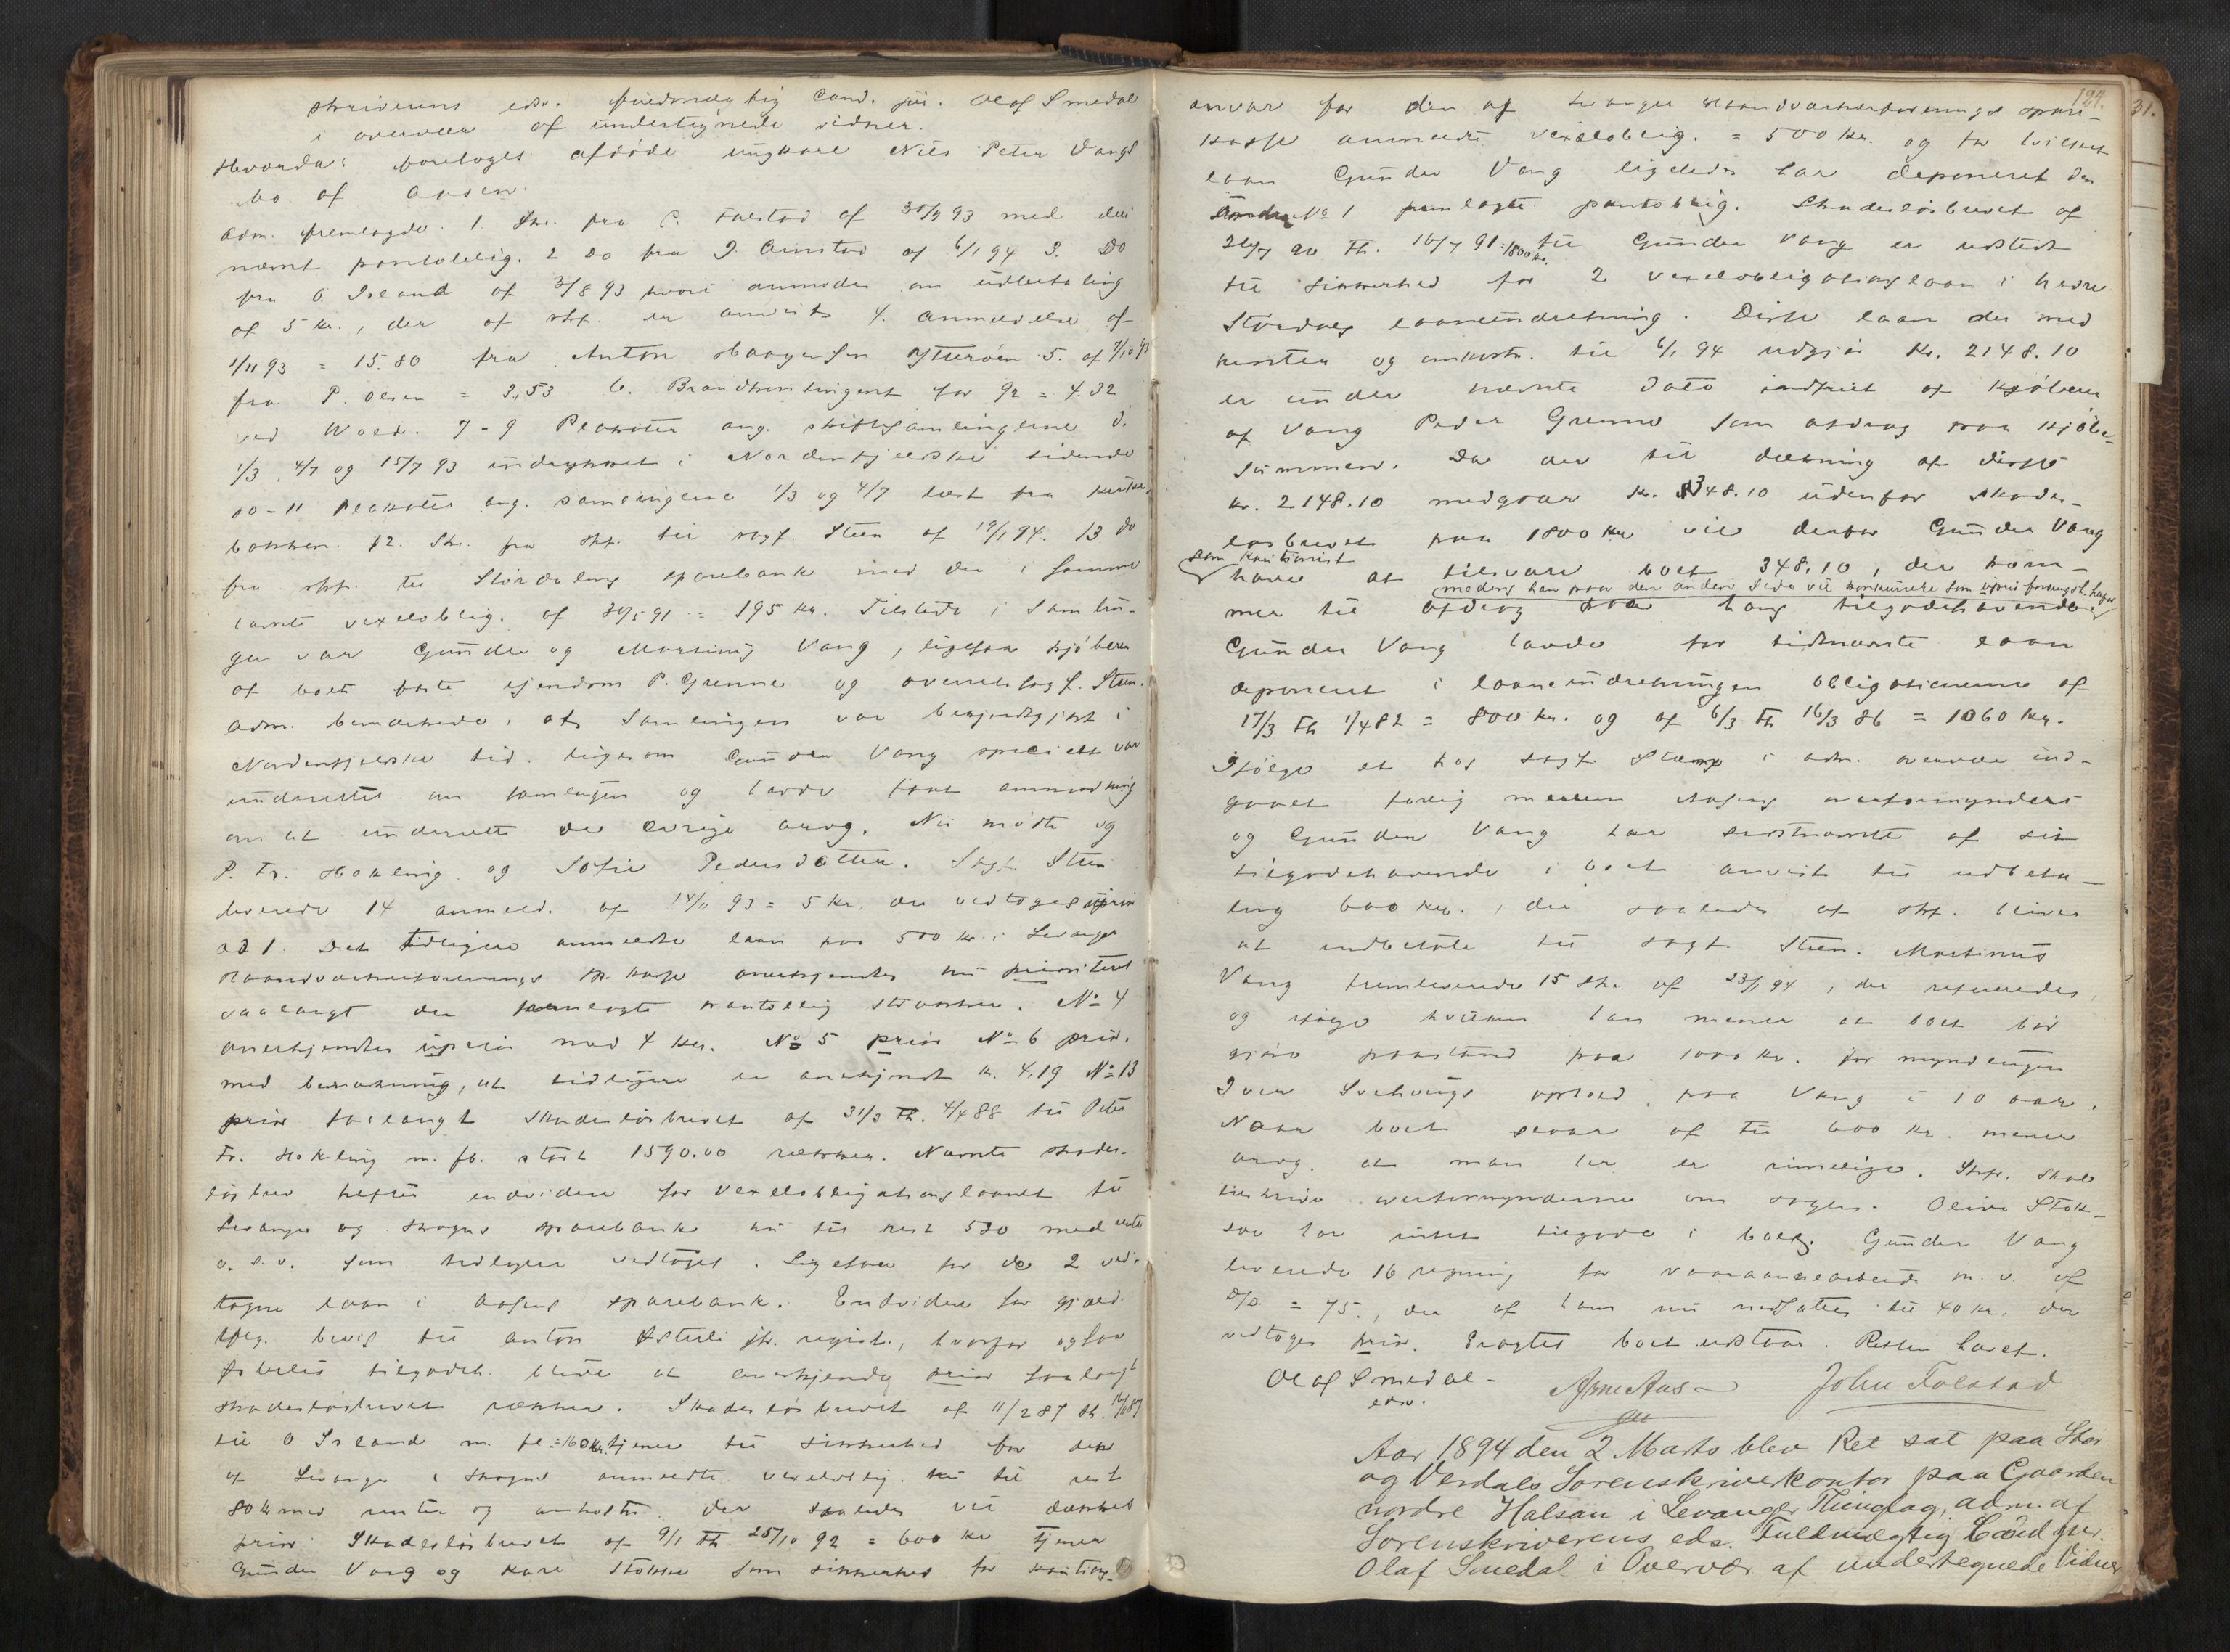 skriverens eds. fuldmægtig Cand. jur. Olaf Smedal
i overvær af undertegnede vidner.
Hvorda: foretoges afdøde ungkarl Nils Peter Vangs
bo af Aasen.
Adm. fremlagde. 1 Skr. fra C. Falstad af 30/9 93 med deri
nævnt pantoblig. 2 Do fra J. Arnstad af 6/1 94 3. Do
fra O. Island af 3/8 93 hvori anmodes om udbetaling
af 5 Kr., der af skf. er anvist 4. Anmeldelse af
1/11 93 = 15.80 fra Anton Haagensen Ytterøen 5. af 7/10 93
fra P. Olsen = 3,53 6. Brandkontingent for 92 = 4.32
ved 7-9 Plakater ang. skiftesamlingerne d.
1/3, 4/7 og 15/7 93 indrykket i Nordenfjelske tidende
10-11 Plakater ang. samlingerne 1/3 og 4/7 læst fra kirke-
bakken. 12. Skr. fra skf. til sagf. Steen af 19/1 94. 13 do
fra skf. til Størdalens sparebank med den i samme
lånte vexeloblig. af 30/5 91 = 195 Kr. Tilstede i samlin-
gen var Gunder og Martinus Vang, ligesaa kjøberen
af boets faste ejendom P. Grenne og overretssagf. Steen.
Adm. bemærkede, at samlingen var bekjendtgjort i
Nordenfjelske tid. ligesom Gunder Vang specielt var
underrettet om samlingen og havde faaet anmodning
om at underrette de øvrige arvg. Nu mødte og
P. Fr. Hokling og Sofie Pedersdatter. Sagf. Steen
leverede 14 anmeld. af 14/11 93 = 5 Kr. der vedtoges uprior
ad 1. Det tidligere anmeldte laan paa 500 Kr. i Levanger
Haandværkerforenings sp. kasse anerkjendtes nu prioriteret
saalangt den fremlagte pantoblig strækker. No 4
anerkjendtes uprior med 4 Kr. No 5 prior No 6 prior.
med bemærkning, at tidligere er anerkjendt Kr. 4,19 No 13
prior saalangt skadesløsbrevet af 31/3 Th. 4/4 88 til Peter
Fr. Hokling m. fl. stort 1590.00 rækker. Nævnte skades-
løsbrev hefter endvidere for vexelobligationslaanet til
Levanger og Skogns sparebank nu til rest 530 med rente
o. s. v. som tidligere vedtaget. Ligesaa for de 2 ved-
tagne laan i Aasens sparebank. Endvidere for gjæld
ifølg. bevis til Anton Østeli jfr. regist., hvorfor ogsaa
Østelis tilgodeh. bliver at anerkjende prior saalangt
skadesløsbrevet rækker. Skadesløsbrevet af 11/2 87 th.
til O Island m. fl. = 160 Kr. tjener til sikkerhed for den
af Levanger & Skogns anmeldte vexeloblig. nu til rest
80 Kr med renter og omkostn. der saaledes vil dækkes
prior. Skadesløsbrevet af 9/1 th. 25/10 92 = 600 Kr tjener
Gunder Vang og Karl Stokke som sikkerhed for kautions-
124.
31.
ansvar for den af Levanger Haandværkerforenings spare-
kasse anmeldte vexeloblig. = 500 Kr. og for hvilket
laan Gunder Vang ligeledes har deponeret den
under No 1 fremlagte pantoblig. Skadesløsbrevet af
26/7 90 Th. 16/7 91 = 1800 Kr. til Gunder Vang er udstedt
til sikkerhed for 2 vexelobligationslaan i Nedre
Stjørdals laaneindretning. Disse laan der med
renter og omkostn. til 6/1 94 udgjør Kr. 2148.10
er under nævnte dato indfriet af kjøberen
af Vang Peder Grenne som afdrag paa kjøbe-
summen. Da der til dækning af disse
Kr. 2148.10 medgaar Kr. 348.10 udenfor skades-
løsbrevet paa 1800 Kr vil derfor Gunder Vang
som kautionist
have at tilsvare boet 348,10, der kom-
medens han paa den anden side vil konkurrere som uprior fordringsh.
mer til afdrag paa hans tilgodehavende.
Gunder Vang havde for sidstnævnte laan
deponeret i laaneindretningen obligationerne af
17/3 th 1/4 82 = 800 Kr. og af 6/3 th 16/3 86 = 1060 Kr.
Ifølge et hos sagf. Steen i adm. overvær ind-
gaaet forlig mellem Aasens overformynderi
og Gunder Vang har sidstnævnte af sit
tilgodehavende i boet anvist til udbeta-
ling 600 Kr., der saaledes af skf. bliver
at indbetale til sagf. Steen. Martinus
Vang fremleverede 15 skr. af 23/1 94, der refereredes,
og ifølge hvilken han mener at boet bør
gjøre paastand paa 1000 Kr. for myndlingen
Iver ophold paa Vang i 10 aar.
Naar boet svarer af til 600 Kr. mener
arvg. at man her er rimelige. Skfr. skal
tilskrive overformynderne om sagen. Oline Stok-
har intet tilgode i boet. Gunder Vang
leverede 16 regning for vaaraannearbeide m. v. af
D/D. = 75., der af ham nu nedsattes til 40 Kr. der
vedtoges prior. Eragtes boet udstaar. Retten hævet.
Olaf Smedal
eds.
Arne Aas
John Falstad
Aar 1894 den 2 Marts blev Ret sat paa Stør
og Verdals Sorenskriverkontor paa Gaarden
nordre Halsan i Levanger Thinglag, adm. af
Sorenskriverens eds. Fuldmægtig Cand jur.
Olaf Smedal i Overvær af undertegnede Vidner